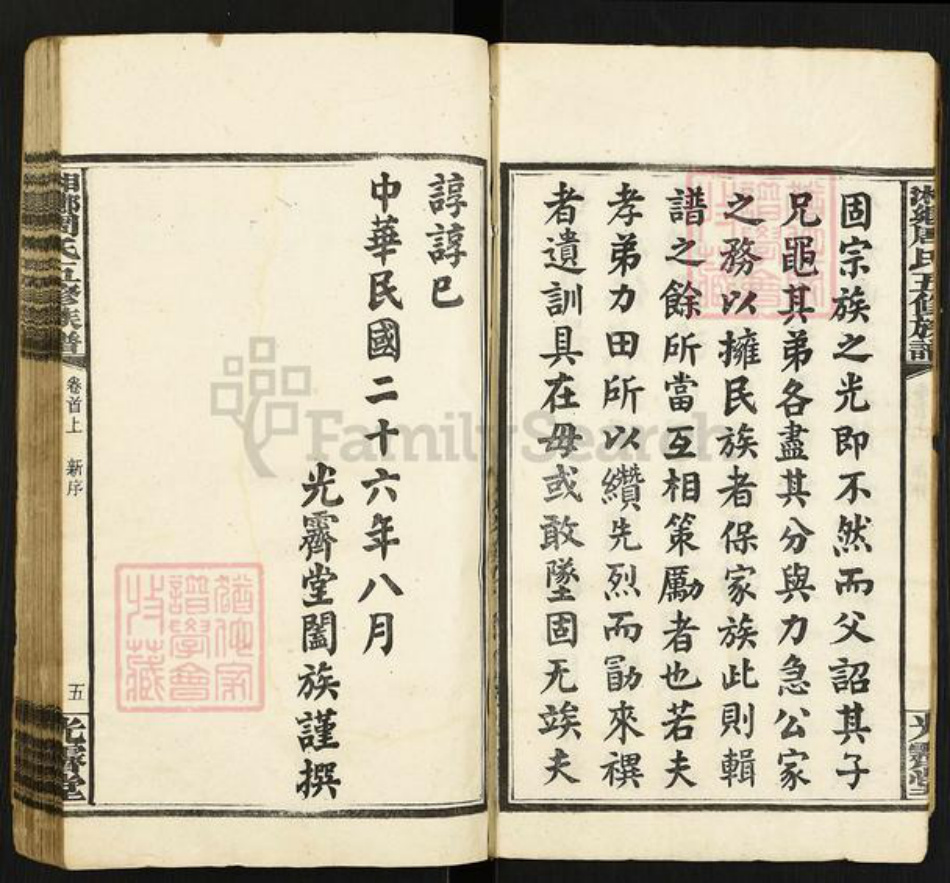 固宗族之光即不然而父詔其子
兄黽其弟各盡其分與力急公家
之務以擁民族者保家族此則輯
譜之餘所當互相策勵者也若夫
孝弟力田所以纘先烈而勖來禩
者遺訓具在毋或敢墜固无竢夫
諄諄已
中華民國二十六年八月
光霽堂闔族謹撰
湘鄉周氏五修族譜
卷首上 新序
五
光霽堂
FamilySearch